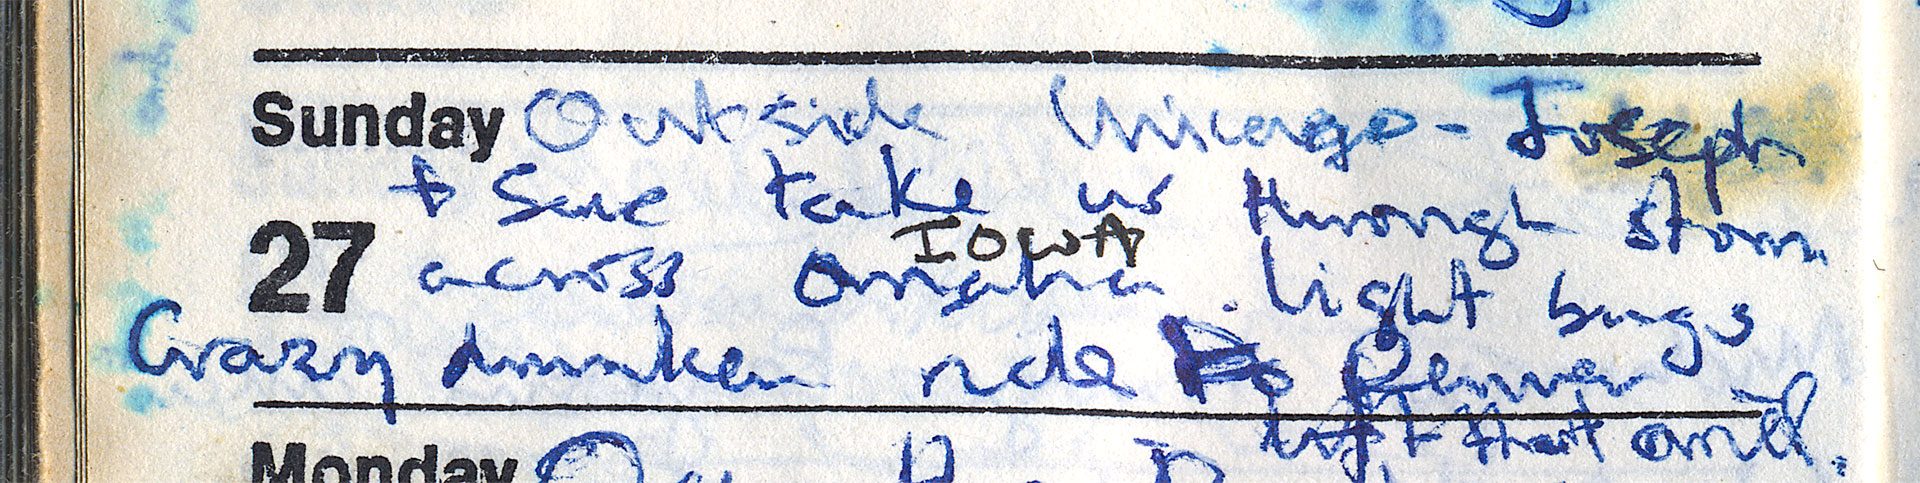 Sunday Outside Chicago - Joseph
+ Sue take us through storm
IOWA
27 across Omaha. Light bugs
Crazy drunken ride to Denver
left that out.
Monday